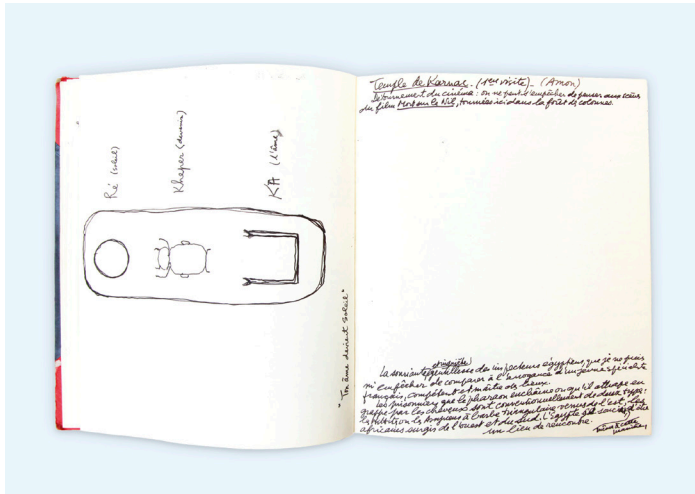 Ré (soleil)
Kheper (devenir)
KA (l'âme)
"Ton âme devient soleil"
Temple de Karnac. (1ère visite) _ (Amon)
détournement du cinéma : on ne peut s'empêcher de penser aux scènes
du film Mort sur le Nil, tournées ici dans la forêt de colonnes.
La souriante et inquiète gentillesse des inspecteurs égyptiens, que je ne puis
m'empêcher de comparer à l'arrogance d'un jeune spécialiste
français, compétent et maître des lieux.
Les prisonniers que le pharaon enchaîne ou qu'il attrape en
grappe par les cheveux sont conventionnellement de deux types :
à barbe triangulaire venus de l'est, les
africains surgis de l'ouest et du sud. L'Egypte
un lieu de rencontre.